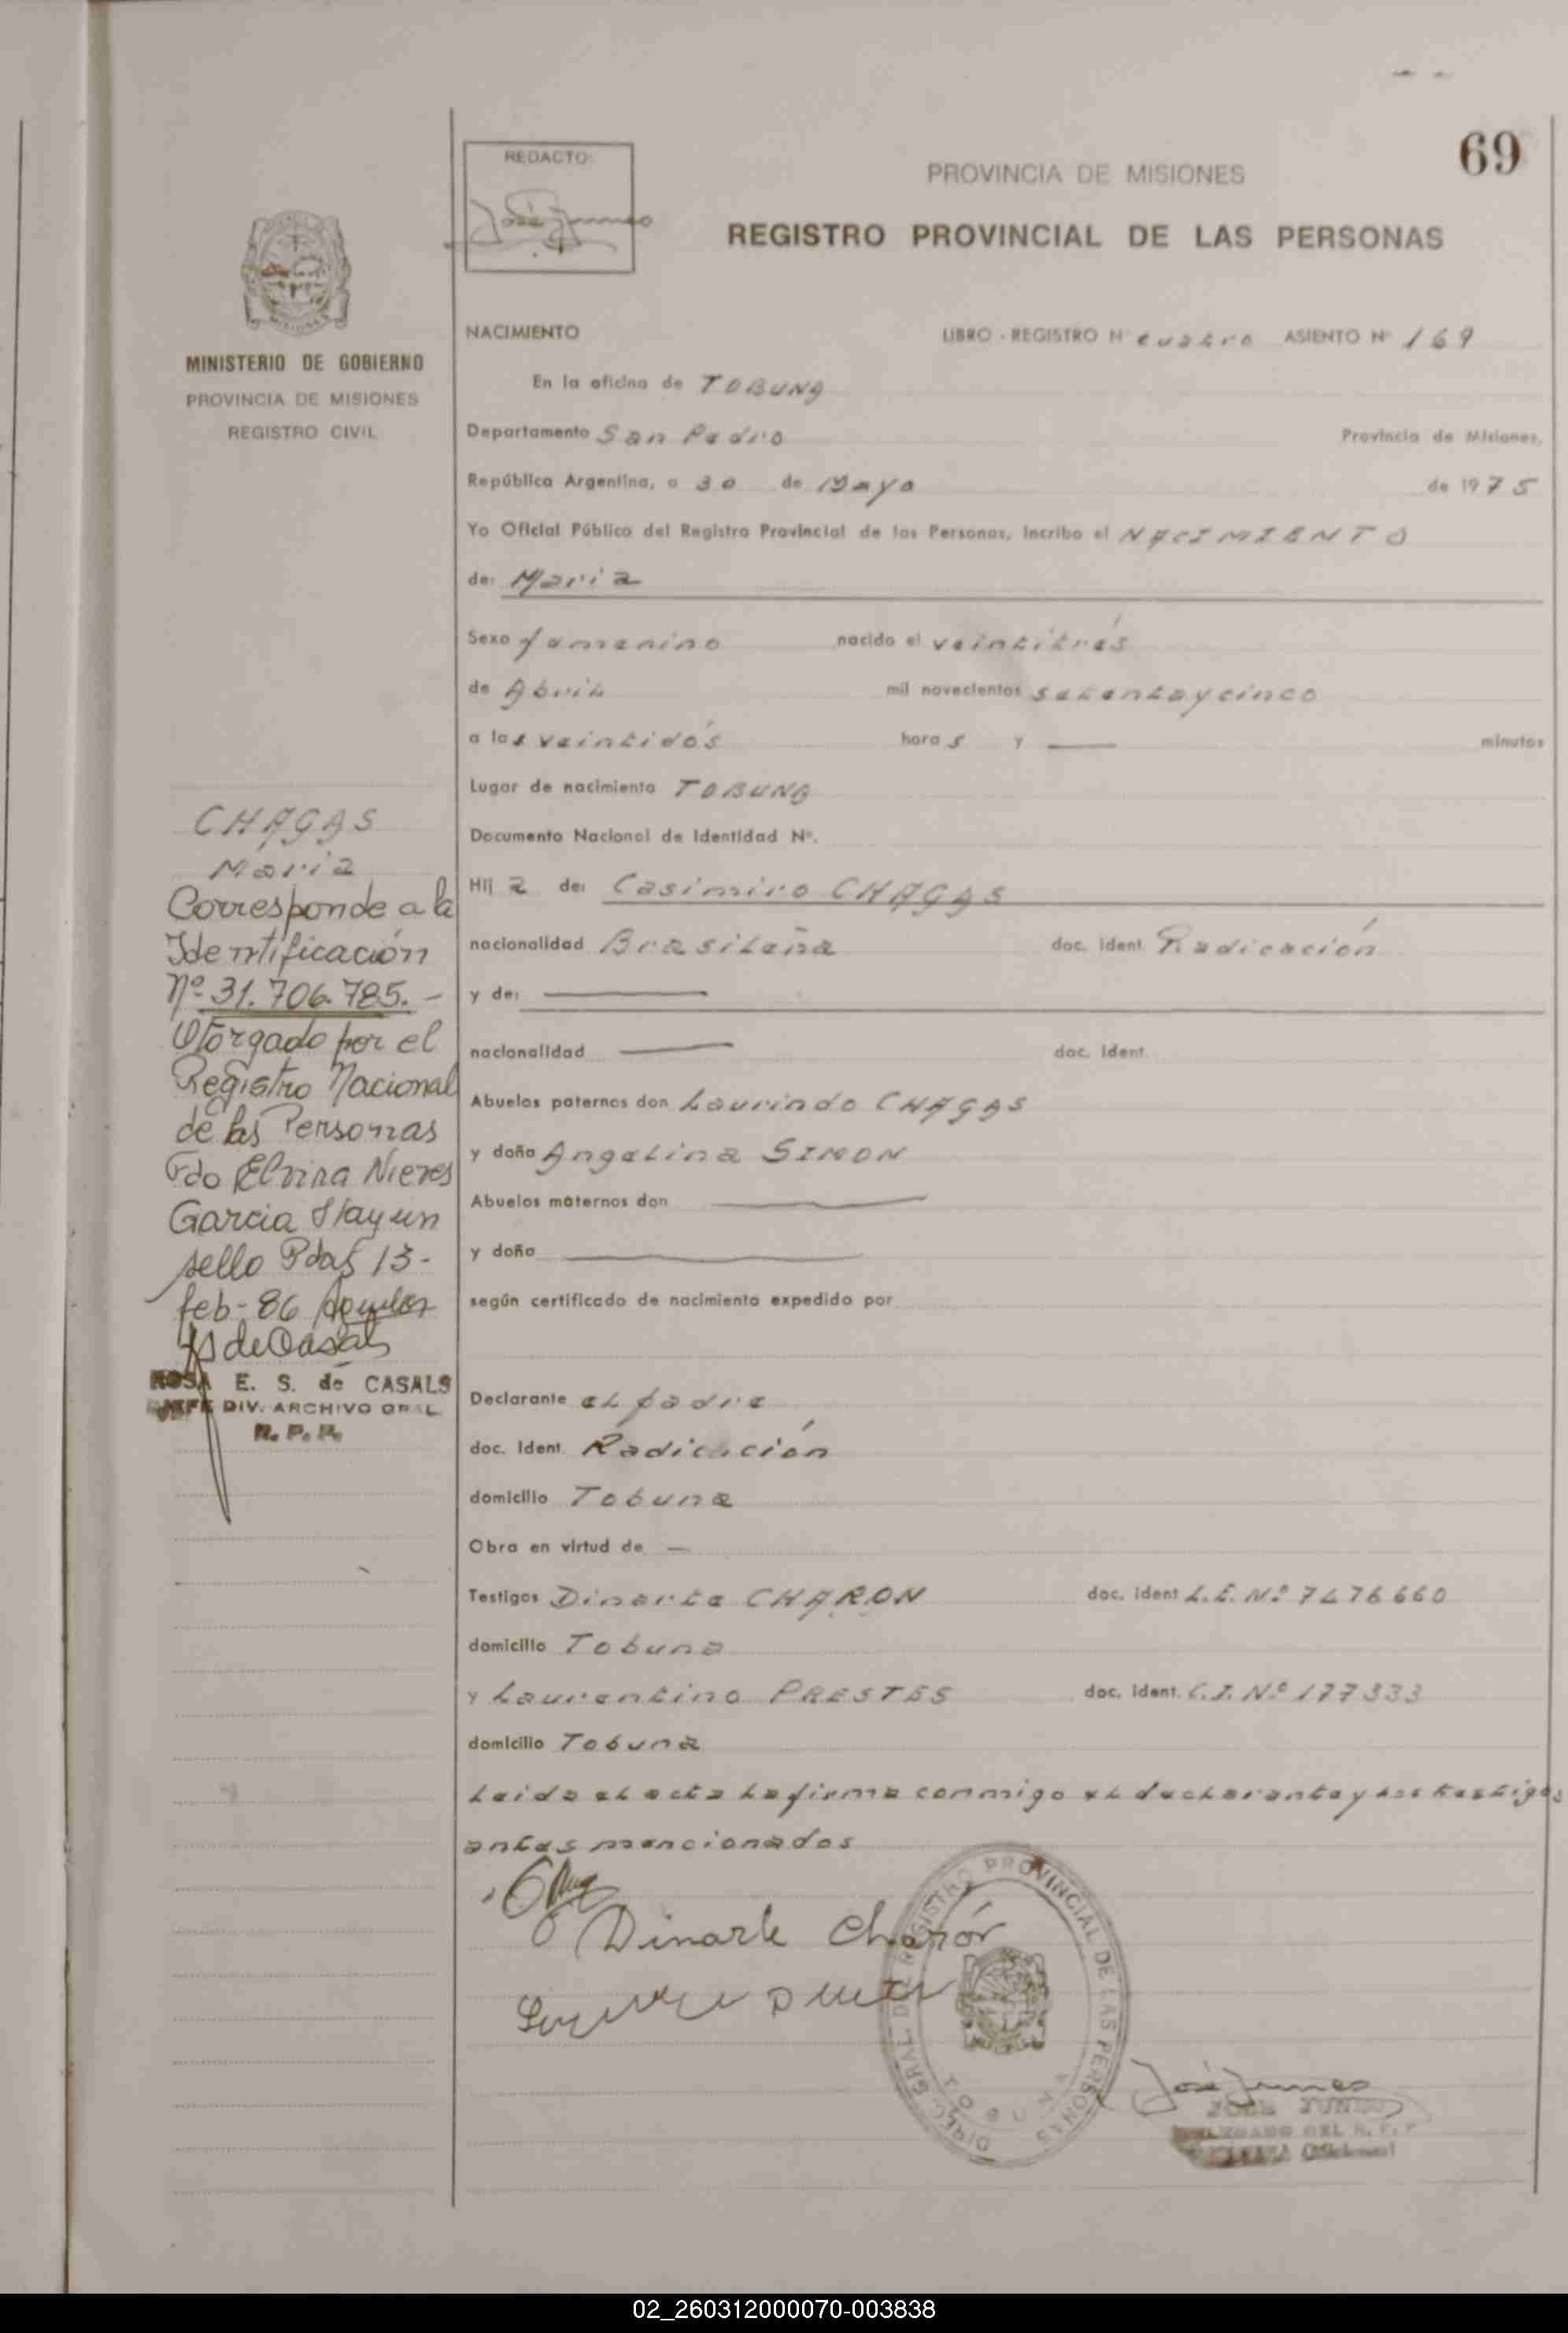 69
REDACTO:
PROVINCIA DE MISIONES
REGISTRO PROVINCIAL DE LAS PERSONAS
MINISTERIO DE GOBIERNO
PROVINCIA DE MISIONES
REGISTRO CIVIL
NACIMIENTO LIBRO - REGISTRO Nº cuatro ASIENTO Nº 169
En la oficina de TOBUNA
Departamento San Pedro Provincia de Misiones,
República Argentina, a 30 de Mayo de 1975
Yo Oficial Público del Registro Provincial de las Personas, Incribo el NACIMIENTO
de: Maria
Sexo femenino nacido el veintitrés
de Abril mil novecientos setentaycinco
a las veintidós horas y — minutos
Lugar de nacimiento TOBUNA
Documento Nacional de Identidad Nº.
Hija de: Casimiro CHAGAS
nacionalidad Brasileña doc. ident. Radicación
y de: —
nacionalidad — doc. ident.
Abuelos paternos don Laurindo CHAGAS
y doña Angelina SIMON
Abuelos maternos don —
y doña —
según certificado de nacimiento expedido por
Declarante el padre
doc. Ident. Radicación
domicilio Tobuna
Obra en virtud de —
Testigos Dinarte CHARON doc. ident L.E. Nº 7476660
domicilio Tobuna
y Laurentino PRESTES doc. ident. C.I. Nº 177333
domicilio Tobuna
Leida el acta la firma conmigo el declarante y los testigos
antes mencionados
Dinarte Charón
DIREC. GRAL. DE REGISTRO PROVINCIAL DE LAS PERSONAS
TOBUNA
CHAGAS
Maria
Corresponde a la
Identificación
Nº 31.706.785. -
Otorgado por el
Registro Nacional
de las Personas
Fdo Elvira Nieves
Garcia
sello Pdas 13-
feb-86
S de Casals
ROSA E. S. de CASALS
JEFE DIV. ARCHIVO GRAL
R. P. P.
02_260312000070-003838